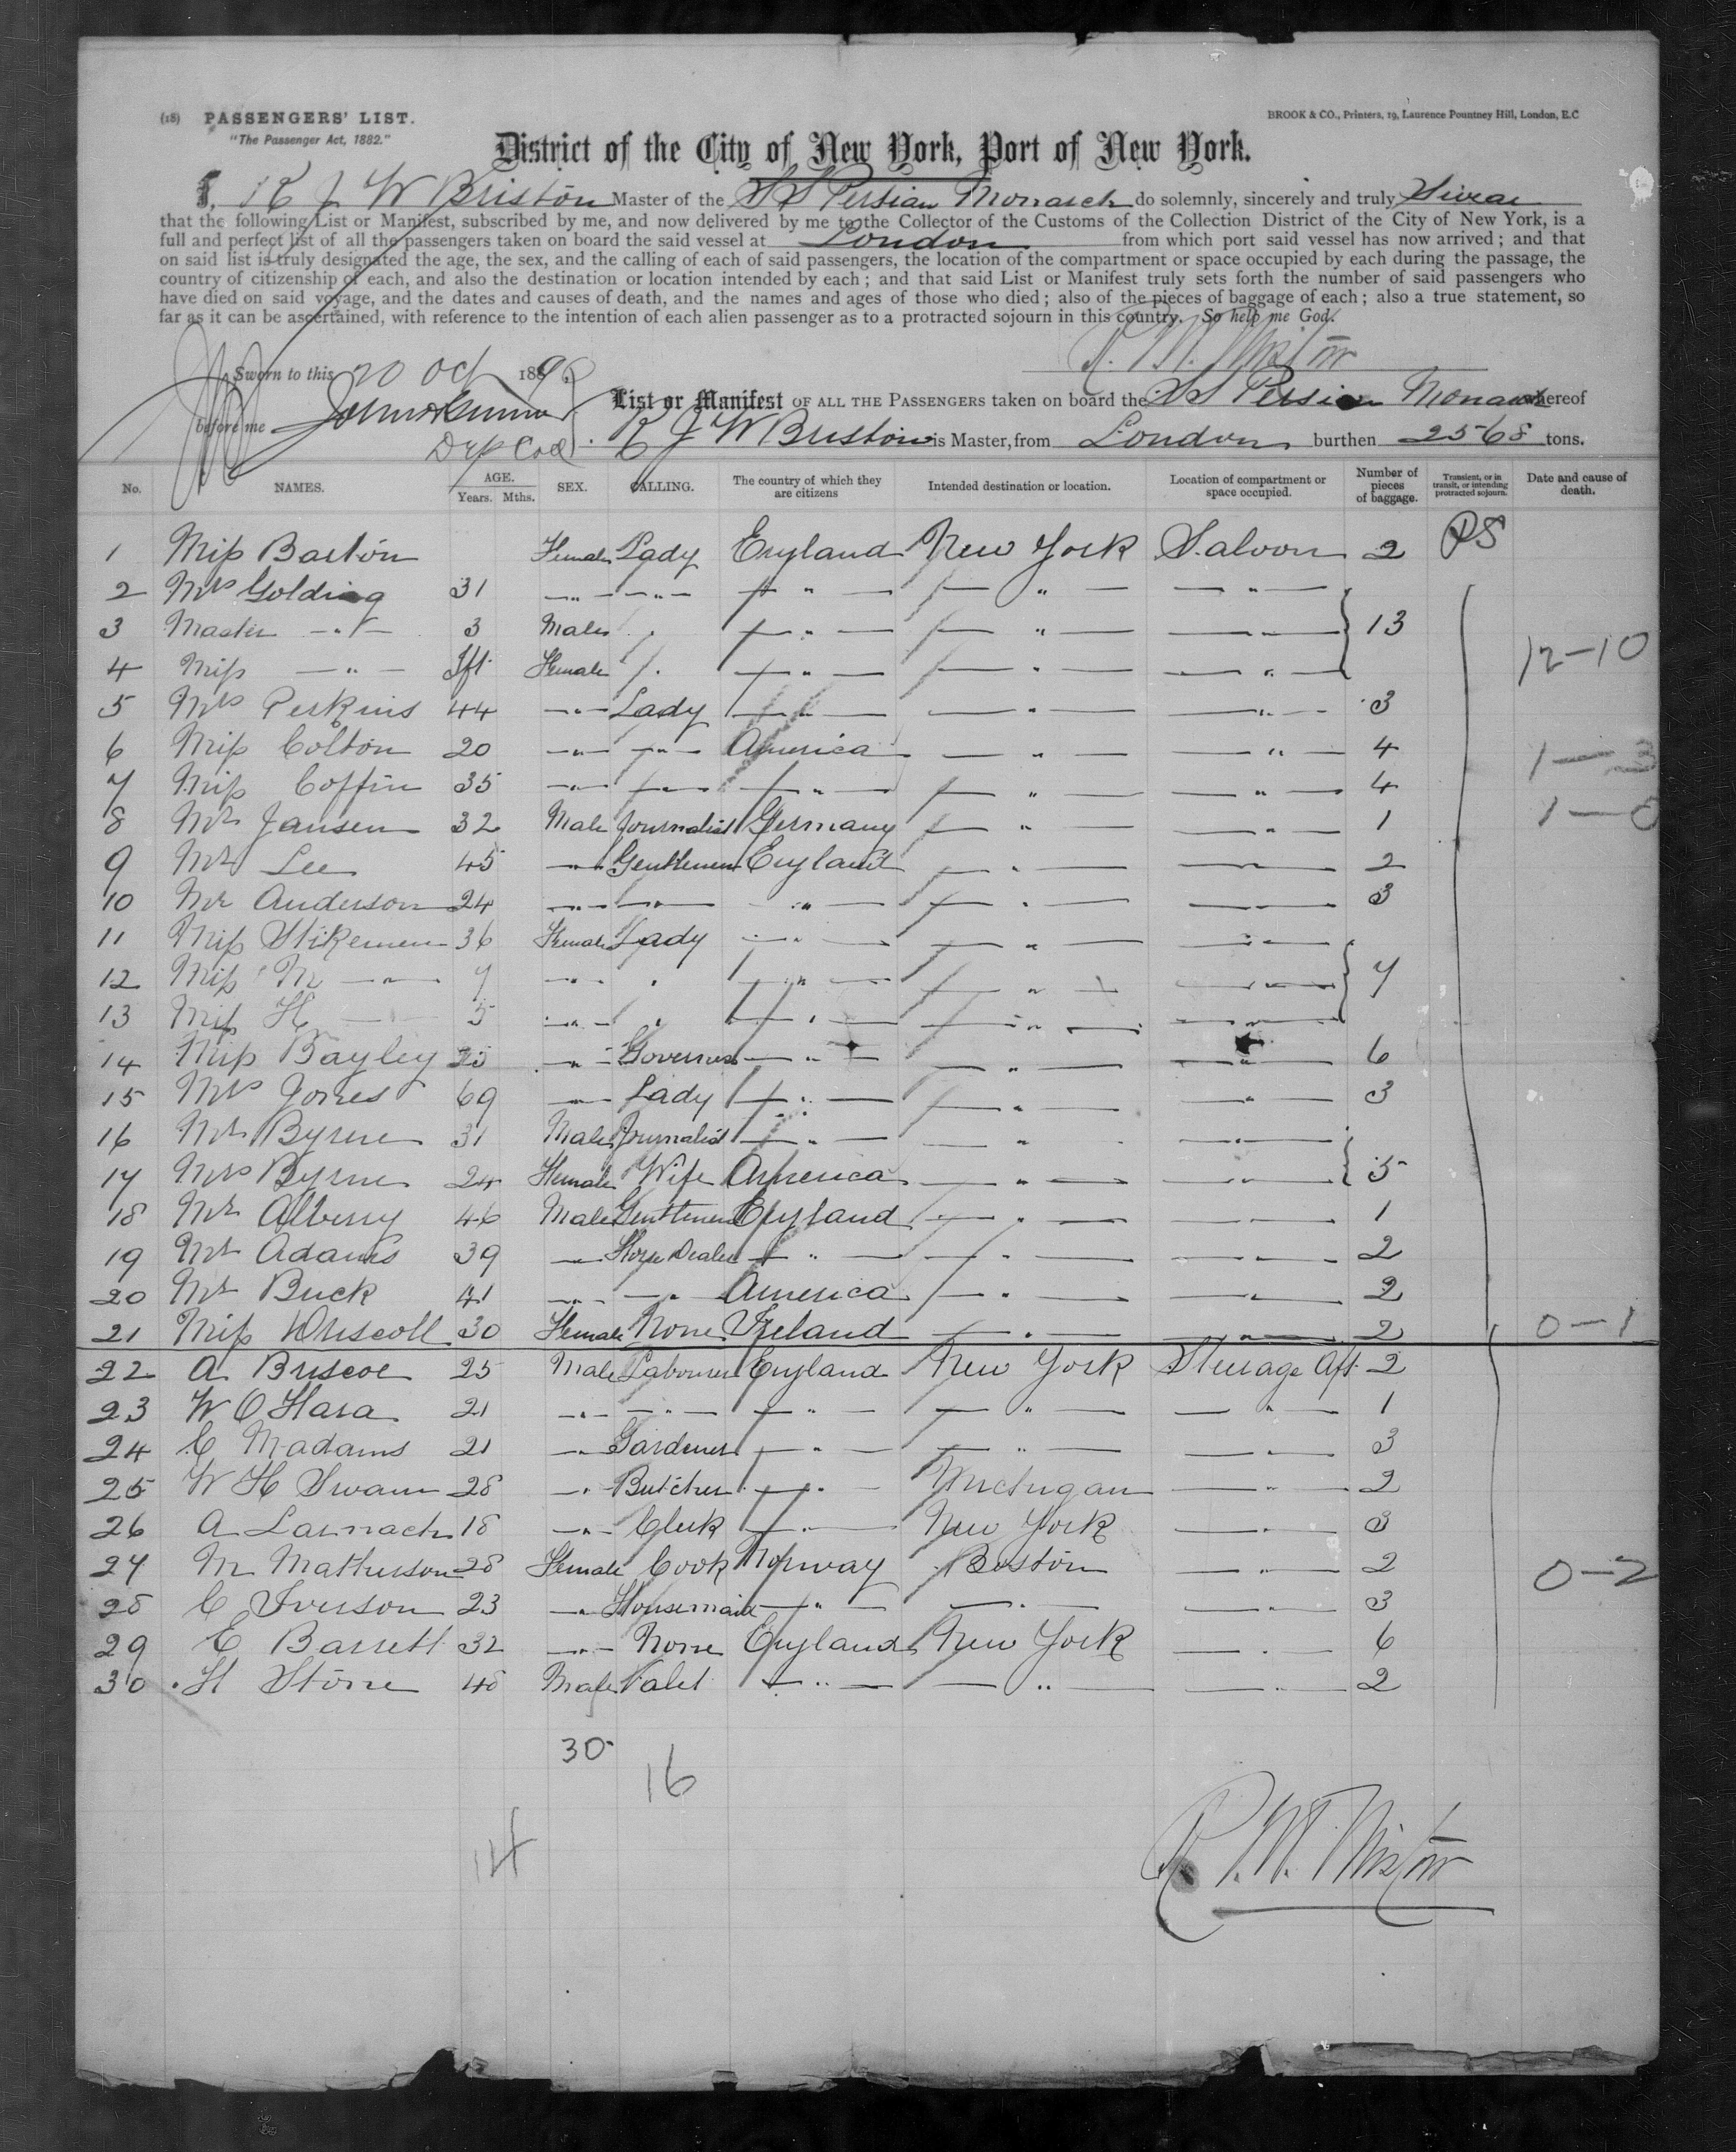 (18) PASSENGERS' LIST.
"The Passenger Act, 1882."
BROOK & CO., Printers, 19, Laurence Pountney Hill, London, E.C
District of the City of New York, Port of New York.
I, R J W Bristow Master of the SS Persian Monarch do solemnly, sincerely and truly Swear
that the following List or Manifest, subscribed by me, and now delivered by me to the Collector of the Customs of the Collection District of the City of New York, is a
full and perfect list of all the passengers taken on board the said vessel at London from which port said vessel has now arrived; and that
on said list is truly designated the age, the sex, and the calling of each of said passengers, the location of the compartment or space occupied by each during the passage, the
country of citizenship of each, and also the destination or location intended by each; and that said List or Manifest truly sets forth the number of said passengers who
have died on said voyage, and the dates and causes of death, and the names and ages of those who died; also of the pieces of baggage of each; also a true statement, so
far as it can be ascertained, with reference to the intention of each alien passenger as to a protracted sojourn in this country. So help me God.
Sworn to this 20 Oct 1890
before me
Dep Col
List or Manifest OF ALL THE PASSENGERS taken on board the SS Persian Monarch whereof
R J W Bristow is Master, from London burthen 2568 tons.
No. NAMES. AGE. Years. Mths. SEX. CALLING. The country of which they are citizens Intended destination or location. Location of compartment or space occupied. Number of pieces of baggage. Transient, or in transit, or intending protracted sojourn. Date and cause of death.
1 Miss Barton Female Lady England New York Saloon 2 PS
2 Mrs Golding 31 " " " " "
3 Master " 3 Male " " " 13
4 Miss " Inft Female " " " 12-10
5 Mrs Perkins 44 " Lady " " " 3
6 Miss Colton 20 " " America " " 4
7 Miss Coffin 35 " " " " " 4 1-3
8 Mr Jansen 32 Male Journalist Germany " " 1 1-0
9 Mr Lee 45 " Gentlemen England " " 2
10 Mr Anderson 24 " " " " " 3
11 Miss Stikemen 36 Female Lady " " "
12 Miss M " 7 " " " " 7
13 Miss H " 5 " " " "
14 Miss Bayley " Governess " " " 6
15 Mrs Jones 69 " Lady " " " 3
16 Mr Byrne 31 Male Journalist " " "
17 Mrs Byrne 24 Female Wife America " " 5
18 Mr Alberry 46 Male Gentlemen England " " 1
19 Mr Adams 39 " Horse Dealer " " " 2
20 Mr Buck 41 " " America " " 2
21 Miss Driscoll 30 Female None Ireland " " 2 0-1
22 A Briscoe 25 Male Labourer England New York Steerage Aft 2
23 W O'Hara 21 " " " " " 1
24 C Madams 21 " Gardener " " " 3
25 W H Swann 28 " Butcher " Michigan " 2
26 A Larnach 18 " Clerk " New York " 3
27 M Mathieson 28 Female Cook Norway Boston " 2 0-2
28 C Iverson 23 " Housemaid " " " 3
29 E Barrett 32 " None England New York " 6
30 H Stone 48 Male Valet " " " 2
30
16
14